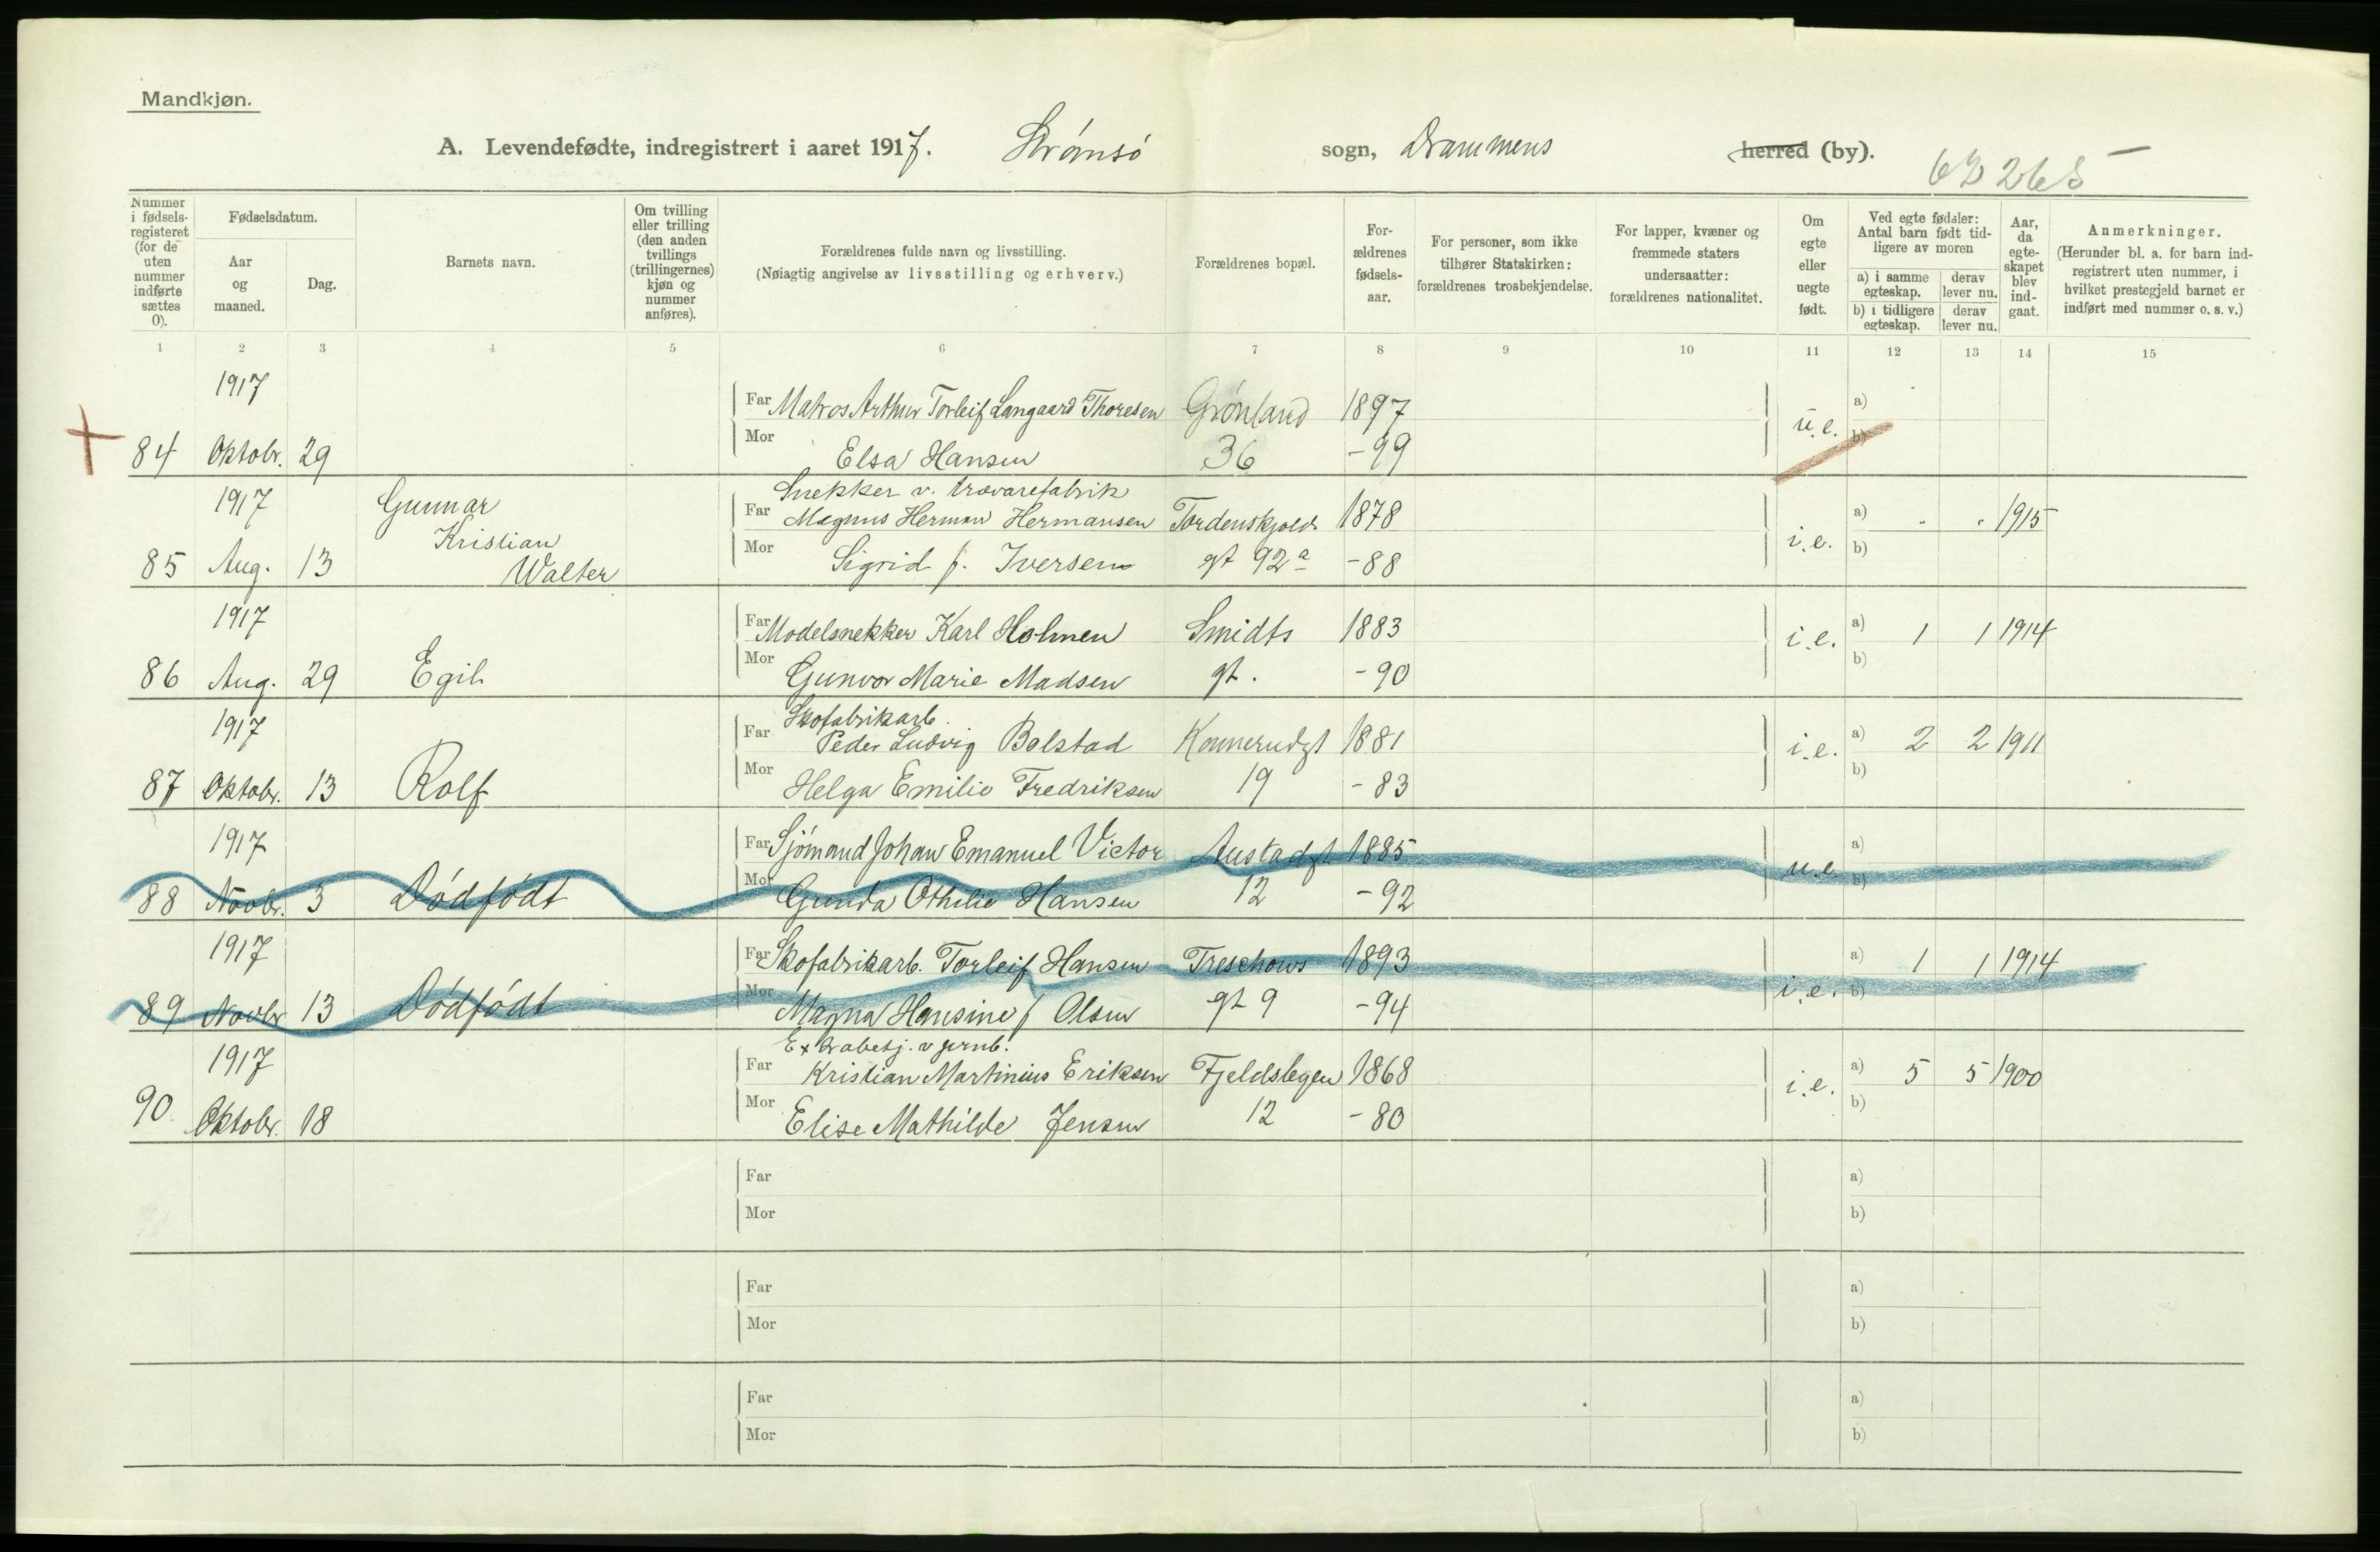 Mandkjøn.
A. Levendefødte, indregistrert i aaret 1917. Strømsø sogn, Drammens herred (by).
Nummer i fødsels-registeret (for de uten nummer indførte sættes 0).
Fødselsdatum.
Aar og maaned.
Dag.
Barnets navn.
Om tvilling eller trilling (den anden tvillings (trillingernes) kjøn og nummer anføres).
Forældrenes fulde navn og livsstilling.
(Nøiagtig angivelse av livsstilling og erhverv.)
Forældrenes bopæl.
For-ældrenes fødsels-aar.
For personer, som ikke tilhører Statskirken: forældrenes trosbekjendelse.
For lapper, kvæner og fremmede staters undersaatter: forældrenes nationalitet.
Om egte eller uegte født.
Ved egte fødsler: Antal barn født tid-ligere av moren
a) i samme egteskap.
derav lever nu.
b) i tidligere egteskap.
derav lever nu.
Aar, da egte-skapet blev ind-gaat.
Anmerkninger.
(Herunder bl. a. for barn ind-registrert uten nummer, i hvilket prestegjeld barnet er indført med nummer o. s. v.)
1 2 3 4 5 6 7 8 9 10 11 12 13 14 15
1917
Far Matros Arthur Torleif Langaard Thoresen Grønland 1897 u.e. a)
Mor b)
84 Oktobr. 29 Elsa Hansen 36 -99
Snekker v. trævarefabrik
1917 Gunnar Far Magnus Herman Hermansen Tordenskjolds 1878 i.e. a) . . 1915
Kristian Mor b)
85 Aug. 13 Walter Sigrid f. Iversen gt 92a -88
1917 Far Modelsnekker Karl Holmen Smidts 1883 i.e. a) 1 1 1914
Mor b)
86 Aug. 29 Egil Gunvor Marie Madsen gt. -90
Skofabrikarb.
1917 Far Peder Ludvig Bolstad Konnerudgt 1881 i.e. a) 2 2 1911
Mor b)
87 Oktobr. 13 Rolf Helga Emilie Fredriksen 19 -83
1917 Far Sjømand Johan Emanuel Victor Austadgt 1885 u.e. a)
Mor b)
88 Novbr. 3 Dødfødt Gunda Othilie Hansen 12 -92
1917 Far Skofabrikarb. Torleif Hansen Treschows 1893 i.e. a) 1 1 1914
Mor b)
89 Novbr 13 Dødfødt Magna Hansine f Olsen gt 9 -94
1917 Far Kristian Martinius Eriksen 1868 i.e. a) 5 5 1900
Mor b)
90 Oktobr. 18 Elise Mathilde Jensen 12 -80
Far a)
Mor b)
Far a)
Mor b)
Far a)
Mor b)